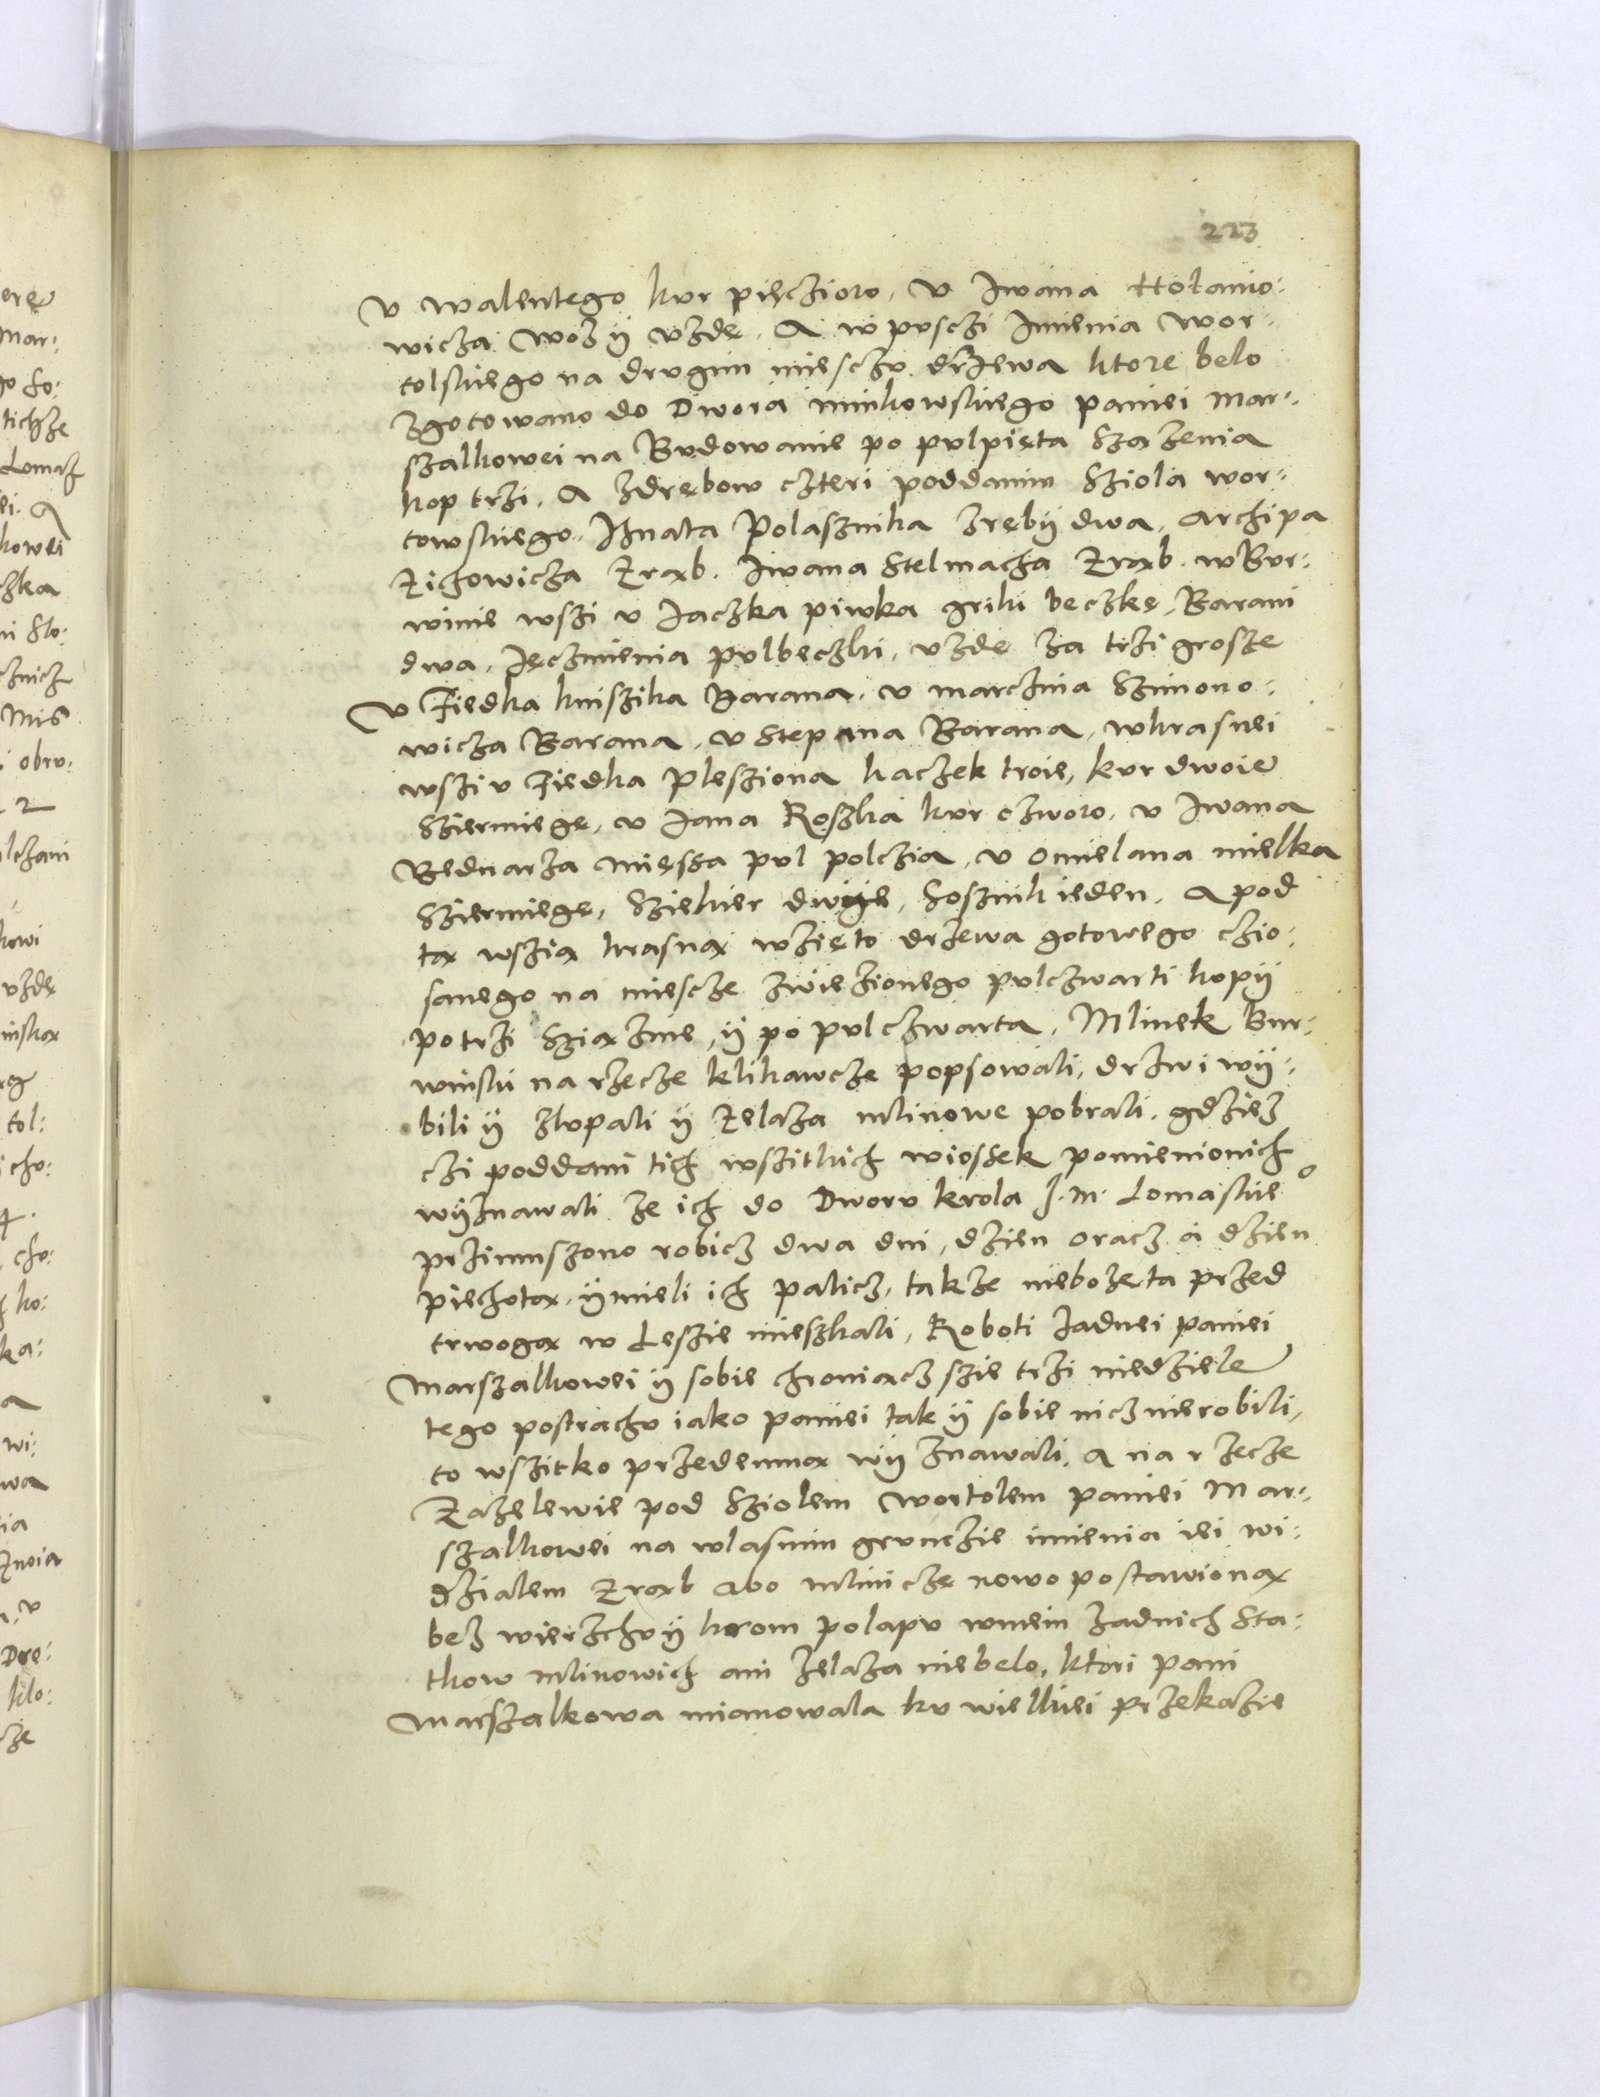 223
v walentego kvr pięczioro, v Iwana Hołanio:
wicza woz ÿ vzdę. A w pvsczi Imienia wor:
tolskiego na drvgim miesczv drzewa ktore belo
zgotowano do Dwora minkowskiego paniei Mar:
szalkowei na Bvdowanie po pvlpięta Szazenia
kop trzi. A zdrębow czteri poddanim Sziola wor:
towskiego. Ihnata Polasznika zrębÿ dwa, Archipa
Zichowicza Zrąb. Iwana Stelmacha Zrąb. w Bvr:
winie wszi v Iaczka piwka griki beczkę, Barani
dwa, Ięczmienia pvlbeczki, vzdę za trzi grosze
v Fiedka kniszika Barana. v marczina Szimono:
wicza Barana, v Stepana Barana, wkrasnei
wszi v Fiedka Plesziona kaczek troie, kvr dwoie
Sziermięgę, v Iana Roszka kvr czworo. v Iwana
Bednarza mięssa pvl polczia, v omielana mielka
Sziermięgę, Sziekier dwige, Sosznik ieden. A pod
tą wszią krasną wzięto drzewa gotowego czio:
sanego na miescze zwiezionego pvlczwarti kopÿ
po trzi Sziąznie, ÿ po pvlczwarta, Mlinek Bur:
winski na rzecze klikawcze popsowali, drzwi wÿ:
bili ÿ zlvpali ÿ Zelaza mlinowe pobrali. gdziez
czi poddani tich wszitkich wiossek pomienionich
wÿznawali ze ich do Dworv krola J. M. Lomaskie°
prziimuszono robicz dwa dni, dzien oracz a dzien
piechotą. ÿ mieli ich palicz, takze niebozęta przed
trwogą w Leszie mieszkali, Roboti Zadnei paniei
Marszalkowei ÿ sobie chroniącz szie trzi niedziele
tego postrachv iako paniei tak ÿ sobie nicz nierobili,
to wszitko przedemną wÿznawali. A na rzecze
Zazelewie pod Sziolem Wortolem paniei Mar:
szalkowei na wlasnim grvnczie imienia iei wi:
dzialem Zrąb abo mlinicze nowo postawioną
bez wierzchv ÿ krom polapv wniein zadnich Sta:
tkow mlinowich ani zelaza niebelo, ktori pani
Marszalkowa mianowala kv wielkiei przekazie